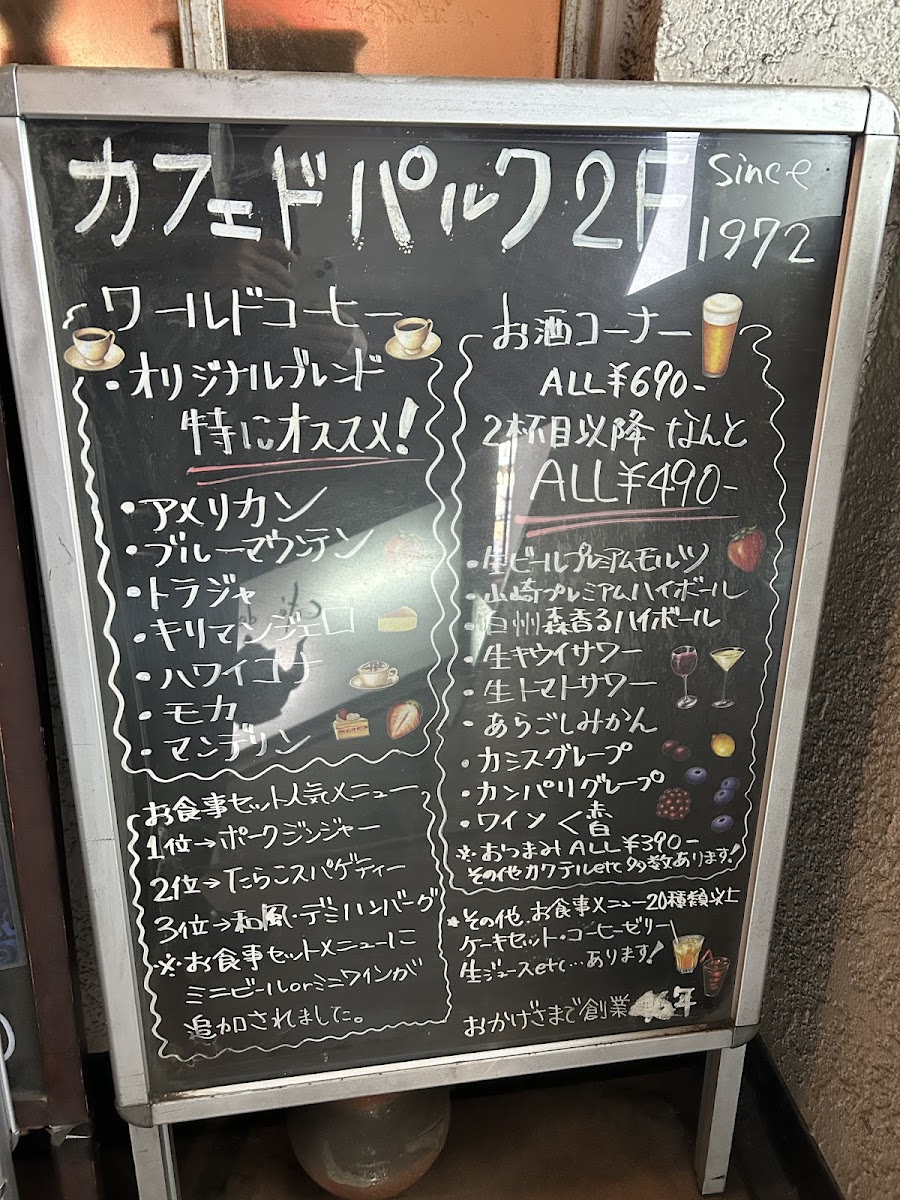 カフェド パルク 2F since 1972
ワールドコーヒー
・オリジナルブレンド
特にオススメ!
・アメリカン
・ブルーマウンテン
・トラジャ
・キリマンジェロ
・ハワイコナ
・モカ
・マンデリン
お食事セット人気メニュー
1位→ポークジンジャー
2位→たらこスパゲティー
3位→和風・デミハンバーグ
※お食事セットメニューに
ミニビールorミニワインが
追加されました。
お酒コーナー
ALL¥690-
2杯目以降 なんと
ALL¥490-
・生ビールプレミアムモルツ
・山崎プレミアムハイボール
・白州森香るハイボール
・生キウイサワー
・生トマトサワー
・あらごしみかん
・カミスグレープ
・カンパリグレープ
・ワイン
※おつまみ ALL ¥390-
その他カクテルetc 多数あります!
*その他..お食事メニュー20種類以上
ケーキセット・コーヒーゼリー
生ジュースetc…あります!
おかげさまで創業 年